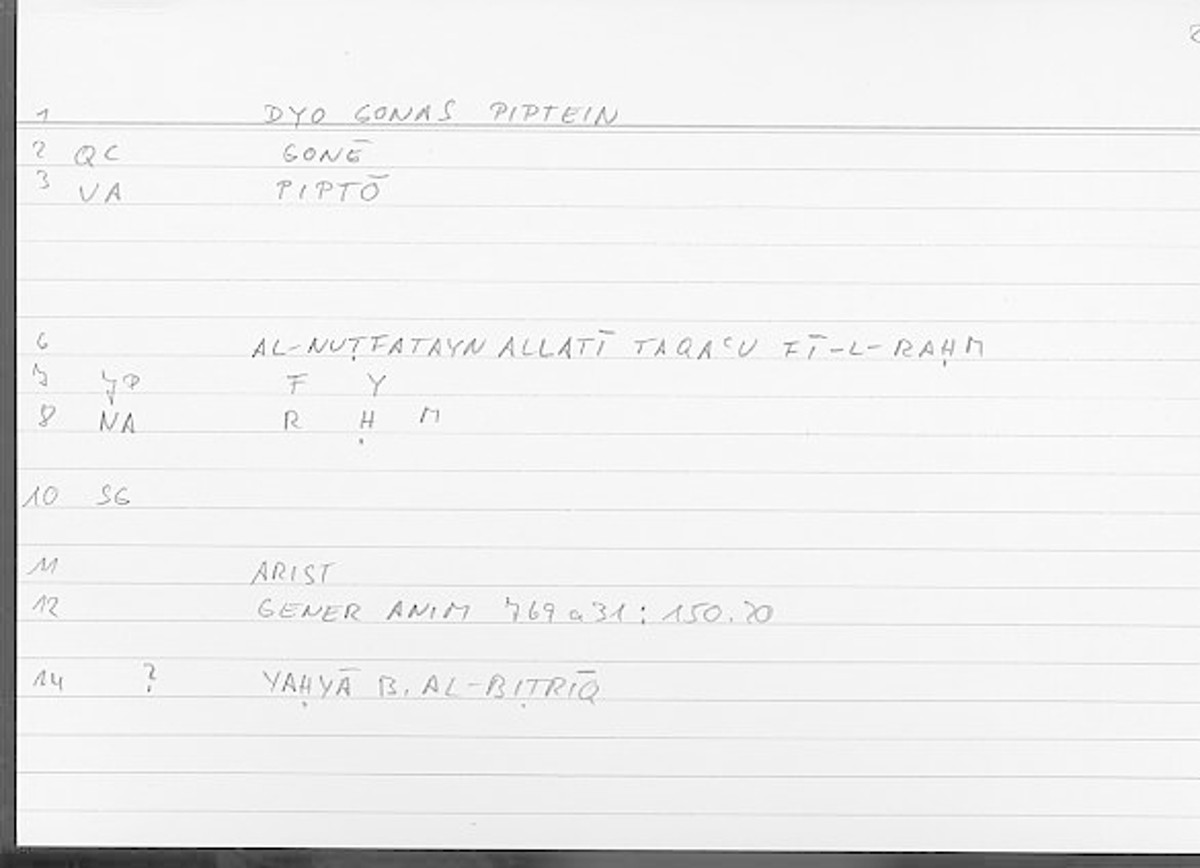 1 DYO GONAS PIPTEIN
2 QC GONĒ
3 VA PIPTŌ
6 AL-NUṬFATAYN ALLATĪ TAQAʿU FĪ-L-RAḤM
7 F Y
8 NA R Ḥ M
10 SG
11 ARIST
12 GENER ANIM 769 a 31 : 150.20
14 ? YAḤYĀ B. AL-BIṬRĪQ